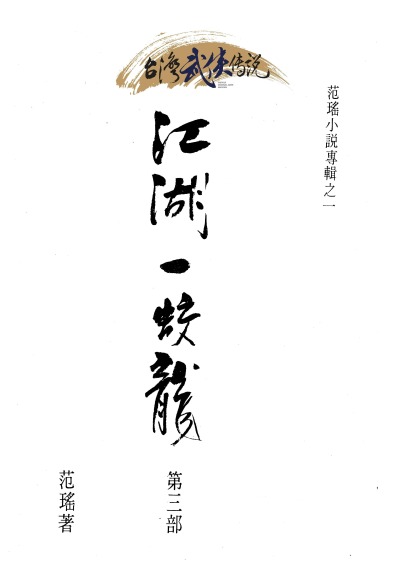 台灣武俠傳説
范瑤小説專輯之一
江湖一蛟龍
第三部
范瑤著